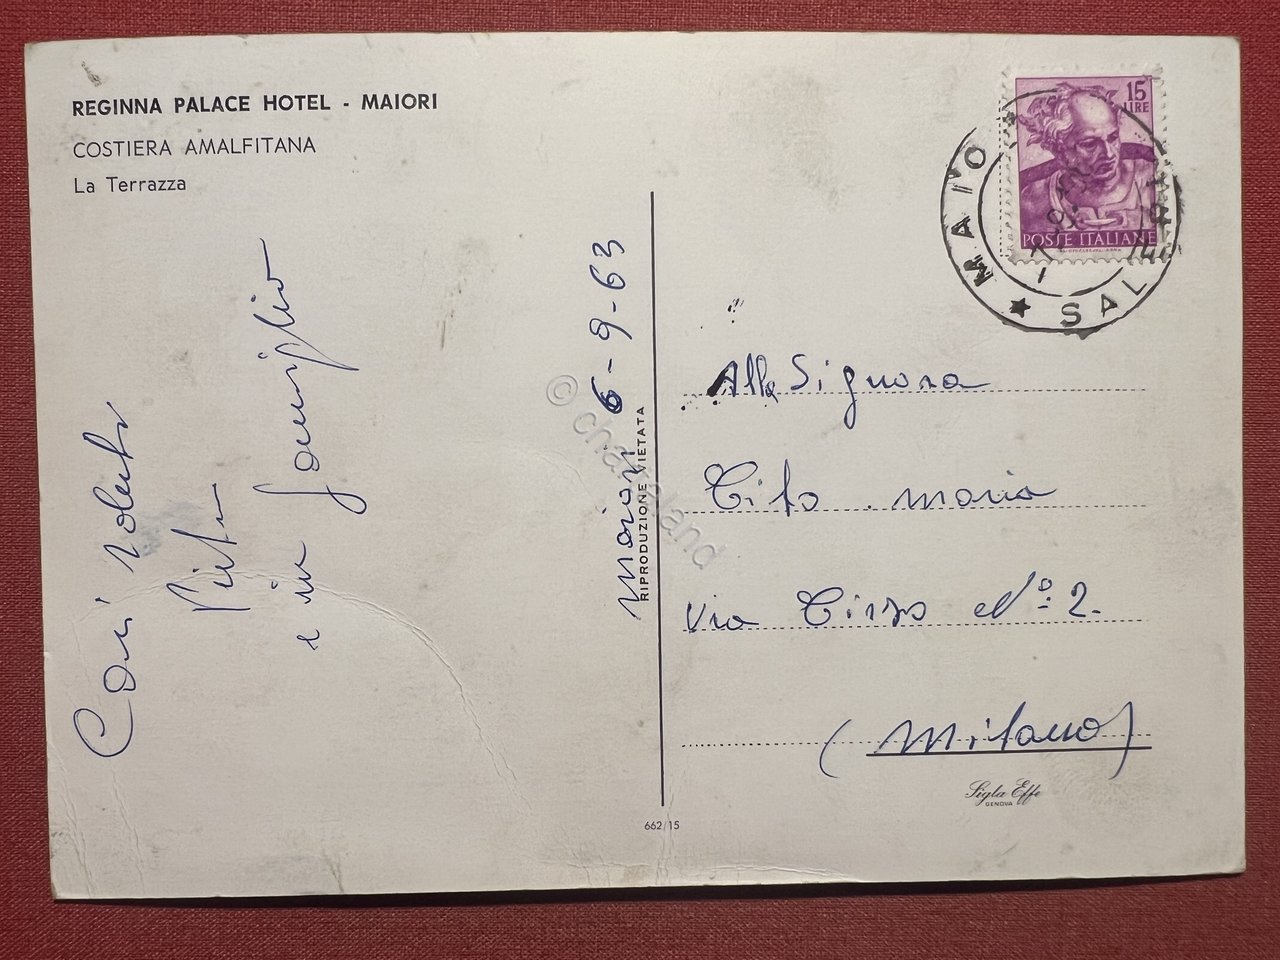 REGINNA PALACE HOTEL - MAIORI
COSTIERA AMALFITANA
La Terrazza
Cari saluti
Pietro
e in famiglia
Maiori 6-9-63
RIPRODUZIONE VIETATA
15
LIRE
POSTE ITALIANE
MAIO
SAL
Alla Signora
Tito maria
Via N° 2.
(Milano)
Sigla Effe
GENOVA
662/15
© chartaland